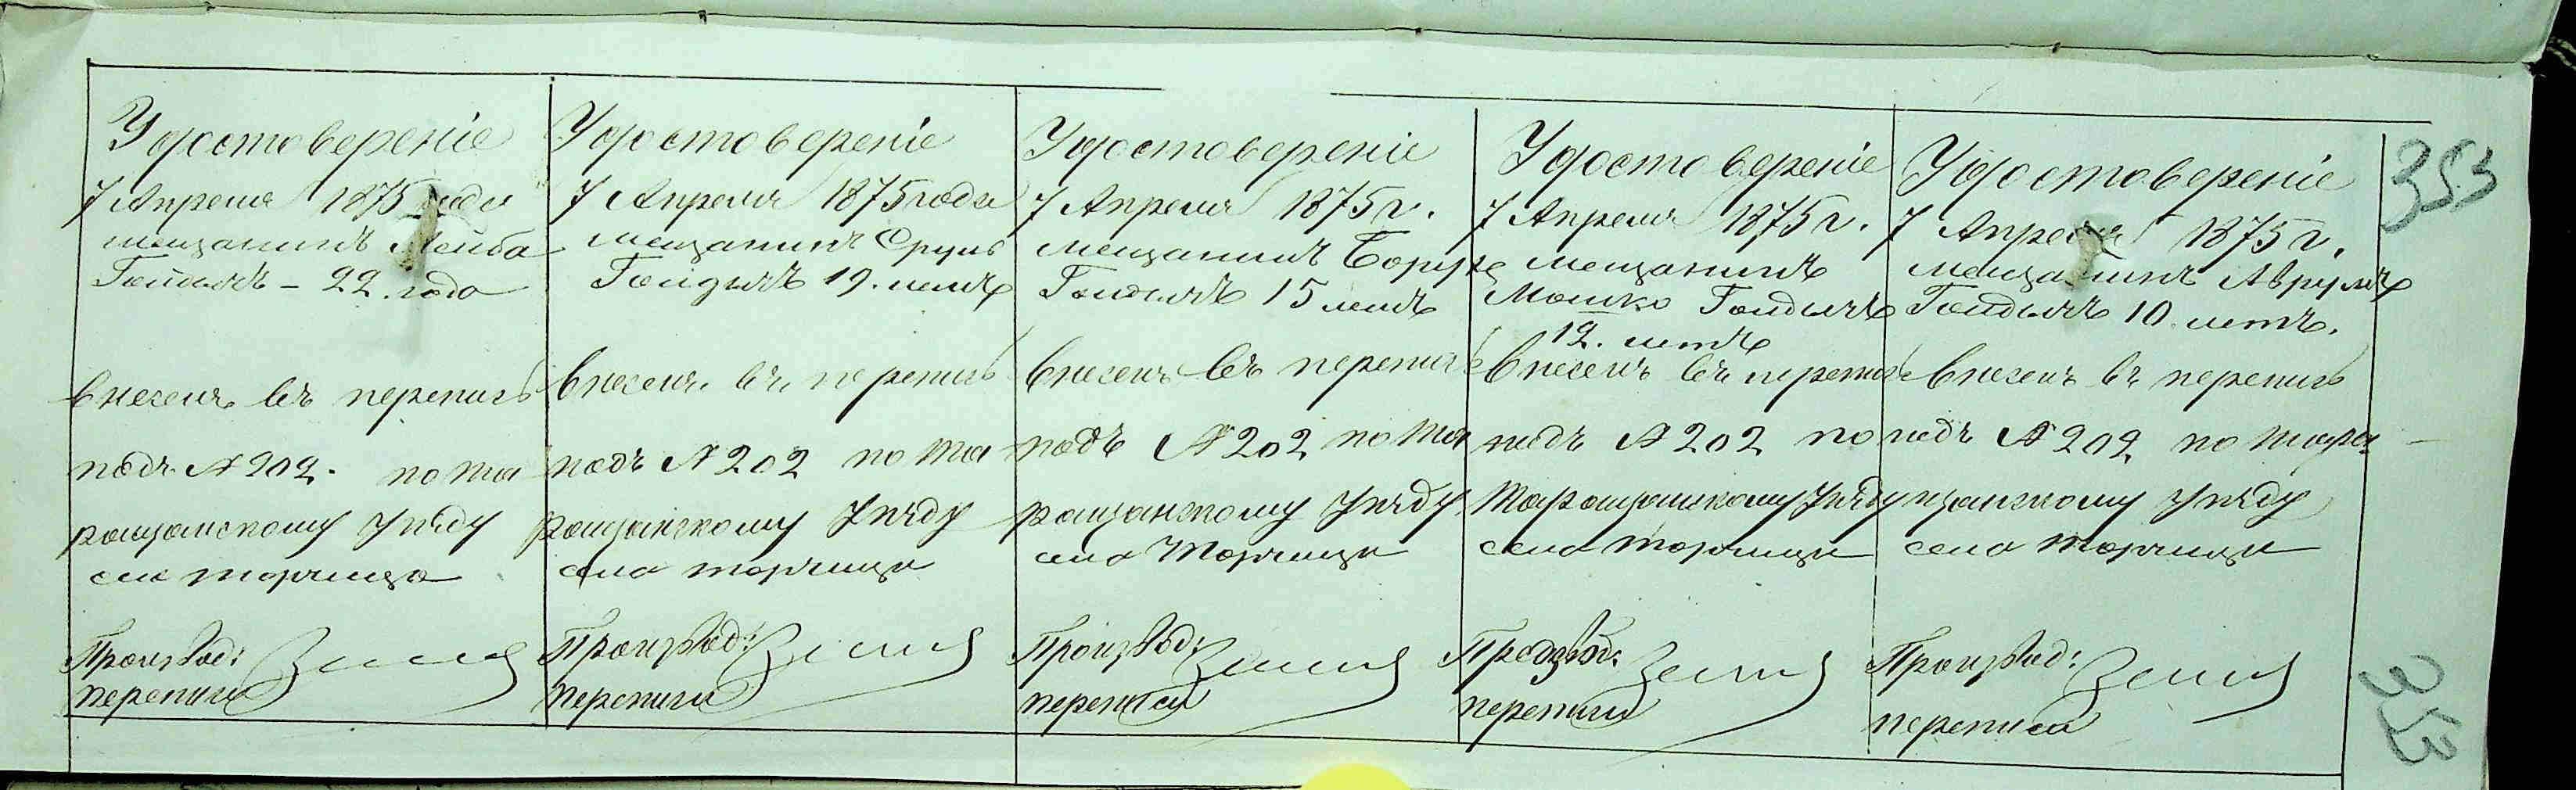 Удостоверение
7 Апреля 1875 года
мещанинъ Лейба
Гойдыхъ - 22. года
внесенъ въ перепись
подъ № 202. по та
ращанскому уѣзду
села Торчица
Производ:
переписи
Удостоверение
7 Апреля 1875 года
мещанинъ Сруль
Гойдыхъ 19. летъ
внесенъ въ перепись
подъ № 202 по та
ращанскому уѣзду
села Торчица
Производ:
переписи
Удостоверение
7 Апреля 1875 г.
мещанинъ Борухъ
Гойдыхъ 15 летъ
внесенъ въ перепись
подъ № 202 по та
ращанскому уѣзду
села Торчица
Производ:
переписи
Удостоверение
7 Апреля 1875 г.
мещанинъ
Мошко Гойдыхъ
12. летъ
внесенъ въ перепись
подъ № 202 по
таращанскому уѣзду
села Торчица
Производ:
переписи
Удостоверение
7 Апреля 1875 г.
мещанинъ Аврумъ
Гойдыхъ 10 летъ.
внесенъ въ перепись
подъ № 202 по тара
щанскому уѣзду
села Торчица
Производ:
переписи
353